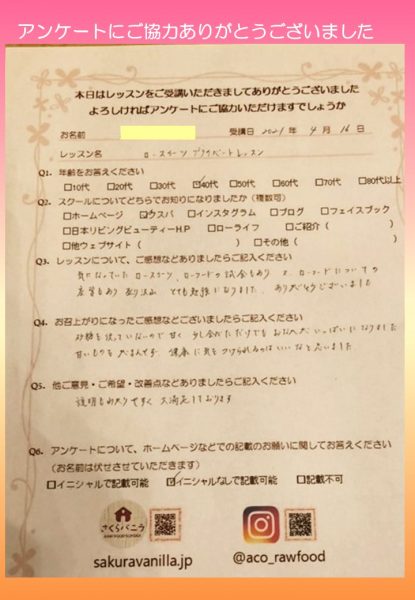 アンケートにご協力ありがとうございました
本日はレッスンをご受講いただきましてありがとうございました
よろしければアンケートにご協力いただけますでしょうか
お名前 受講日 2021年 4月 16日
レッスン名 ロースイーツプライベートレッスン
Q1. 年齢をお答えください
□10代 □20代 □30代 ☑40代 □50代 □60代 □70代 □80代以上
Q2. スクールについてどちらでお知りになりましたか(複数可)
□ホームページ ☑クスパ □インスタグラム □ブログ □フェイスブック
□日本リビングビューティーH.P □ローライフ □ご紹介( )
□他ウェブサイト( ) □その他( )
Q3. レッスンについて、ご感想などありましたらご記入ください
気になっていたロースイーツ、ローフードの試食もあり ローフードについての
座学もあり とても勉強になりました。ありがとうございました
Q4. お召上がりになったご感想などございましたらご記入ください
砂糖を使っていないので甘く 少し食べただけでも おなかがいっぱいになりました
甘いものを 健康に気をつけられるのはいいなと思いました。
Q5. 他ご意見・ご希望・改善点などありましたらご記入ください
説明もわかりやすく 大満足しております
Q6. アンケートについて、ホームページなどでの記載のお願いに関してお答えください
(お名前は伏せさせていただきます)
□イニシャルで記載可能 ☑イニシャルなしで記載可能 □記載不可
さくらばにら
sakuravanilla.jp @aco_rawfood